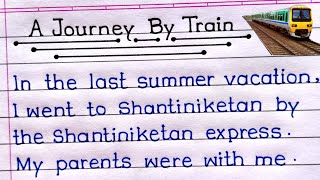 A Journey By Train
In the last summer vacation,
I went to Shantiniketan by
the Shantiniketan express.
My parents were with me.